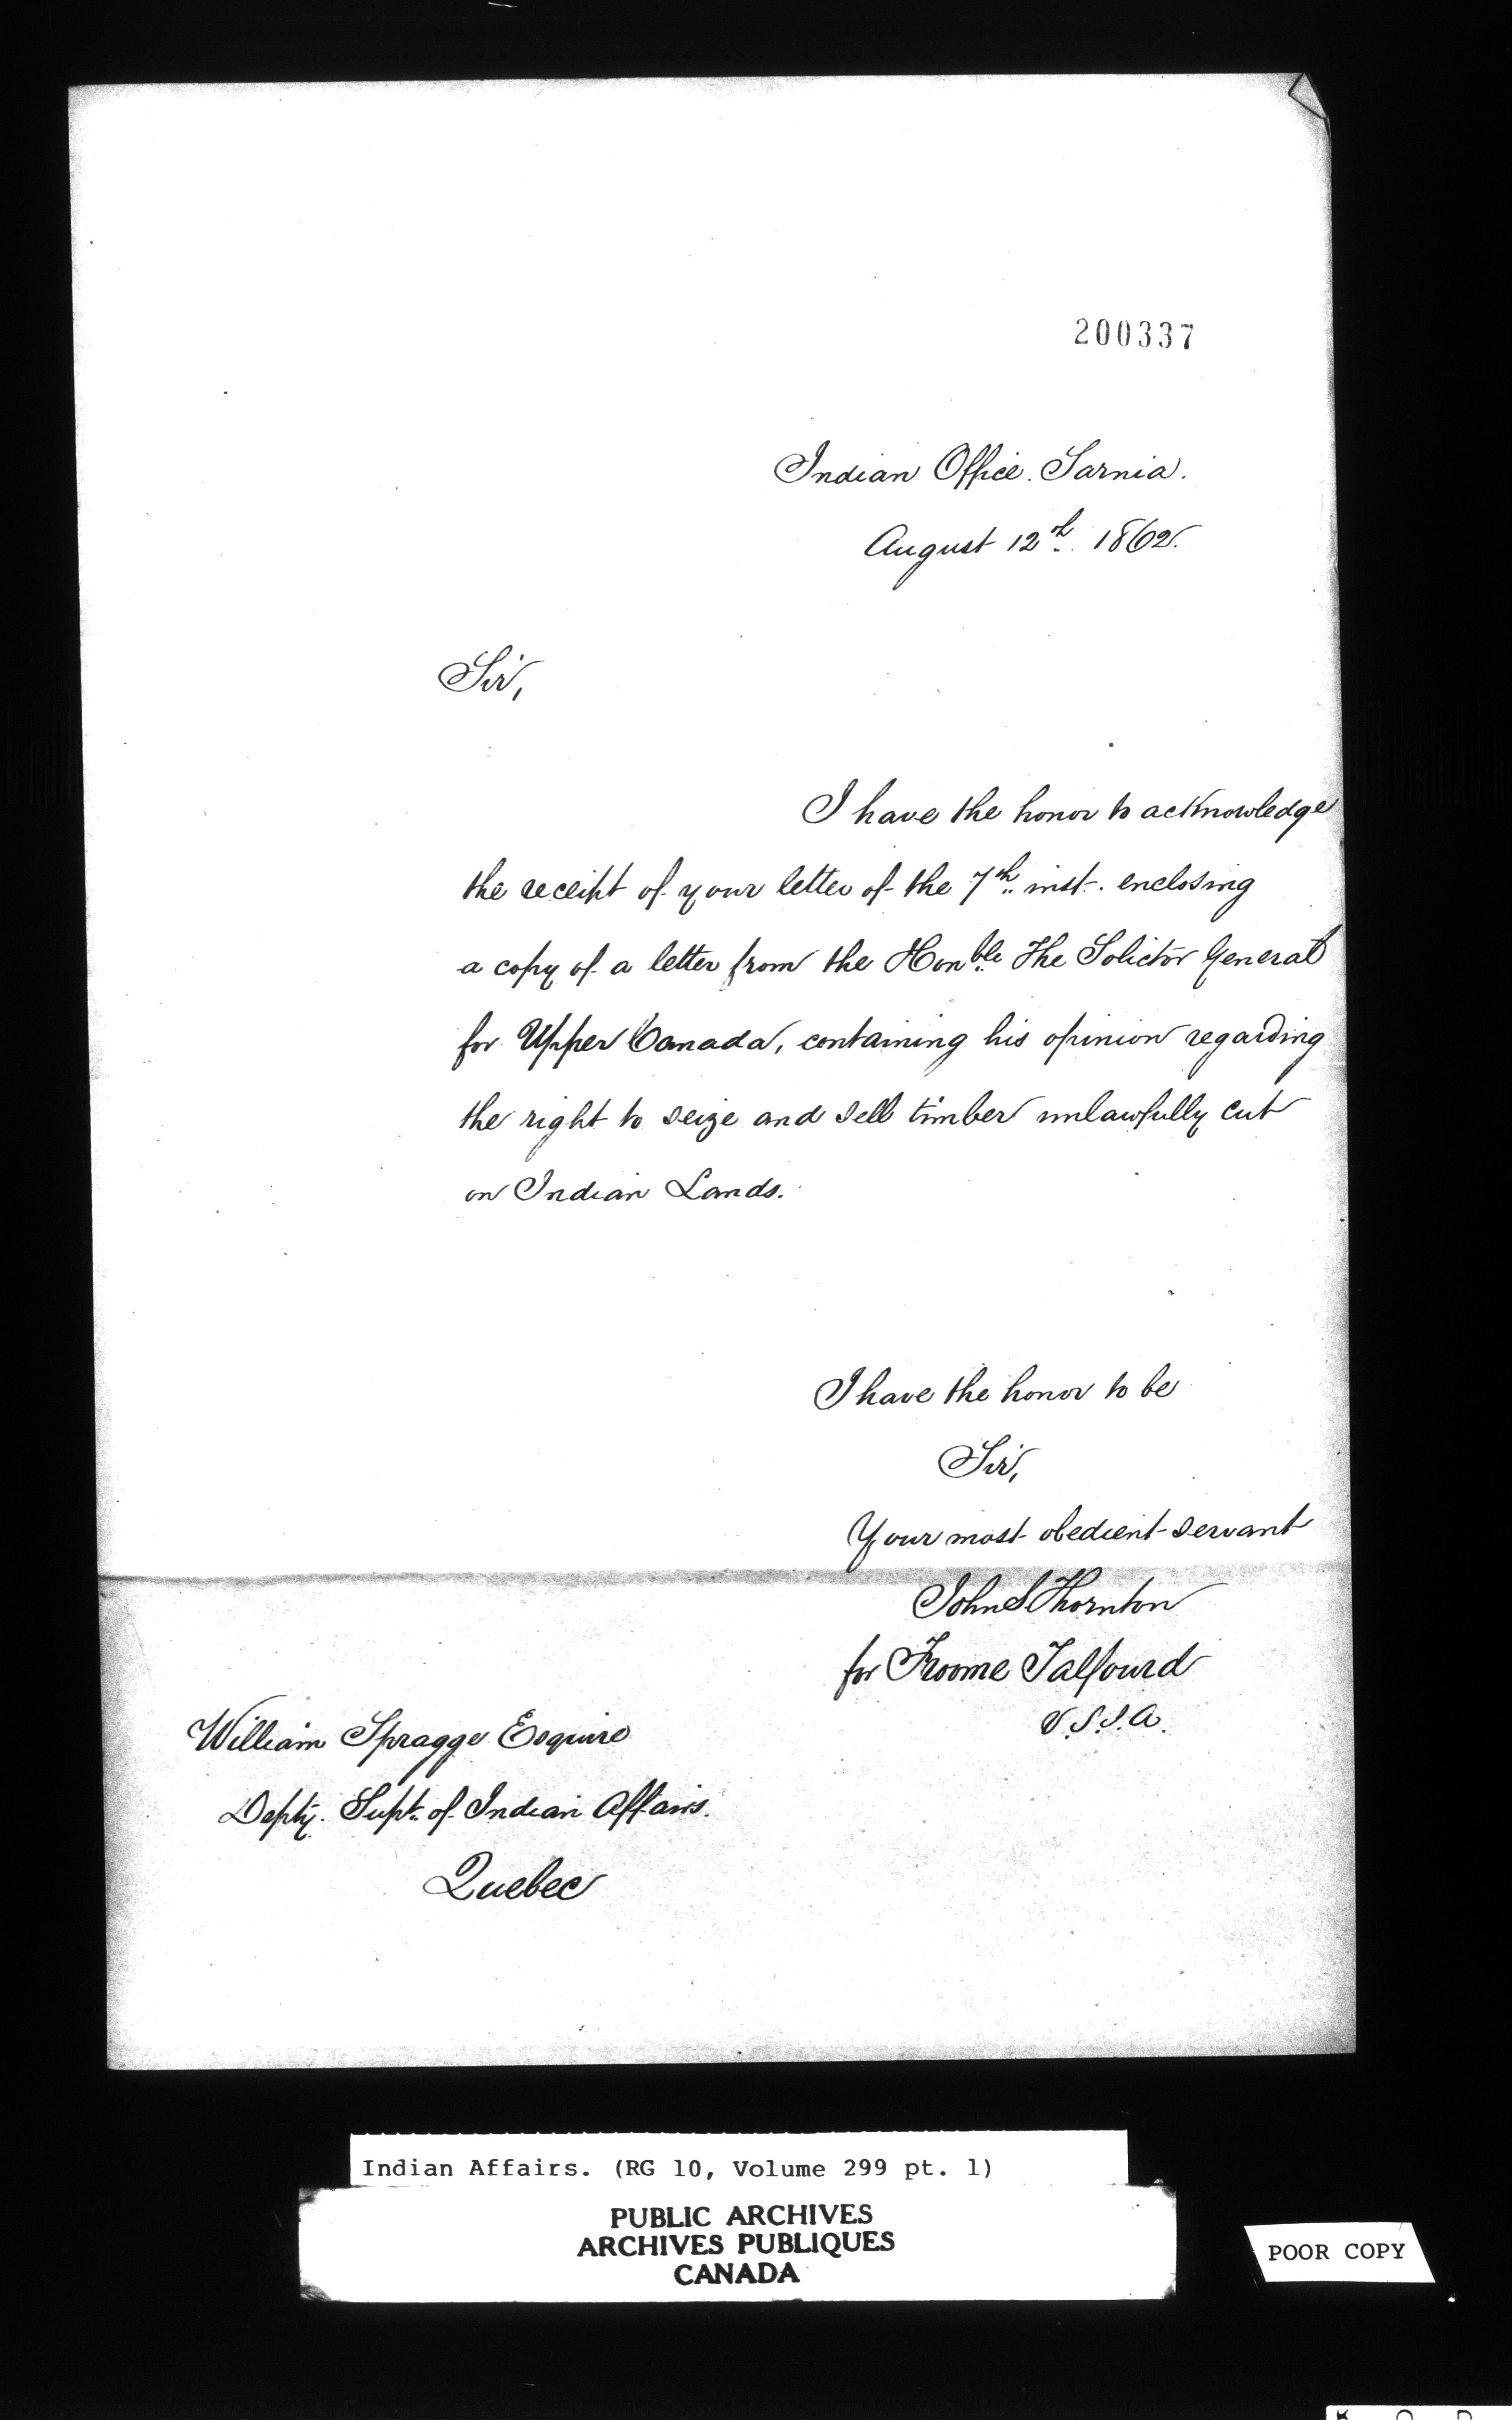 200337
Indian Office. Sarnia.
August 12th. 1862.
Sir,
I have the honor to acknowledge
the receipt of your letter of the 7th inst. enclosing
a copy of a letter from the Honble The Solictor General
for Upper Canada, containing his opinion regarding
the right to seize and sell timber unlawfully cut
on Indian Lands.
I have the honor to be
Sir,
Your most obedient servant
John S Thornton
for Froome Talfourd
V.S.I.A.
William Spragge Esquire
Depty. Supt. of Indian Affairs.
Quebec
Indian Affairs. (RG 10, Volume 299 pt. 1)
PUBLIC ARCHIVES
ARCHIVES PUBLIQUES
CANADA
POOR COPY